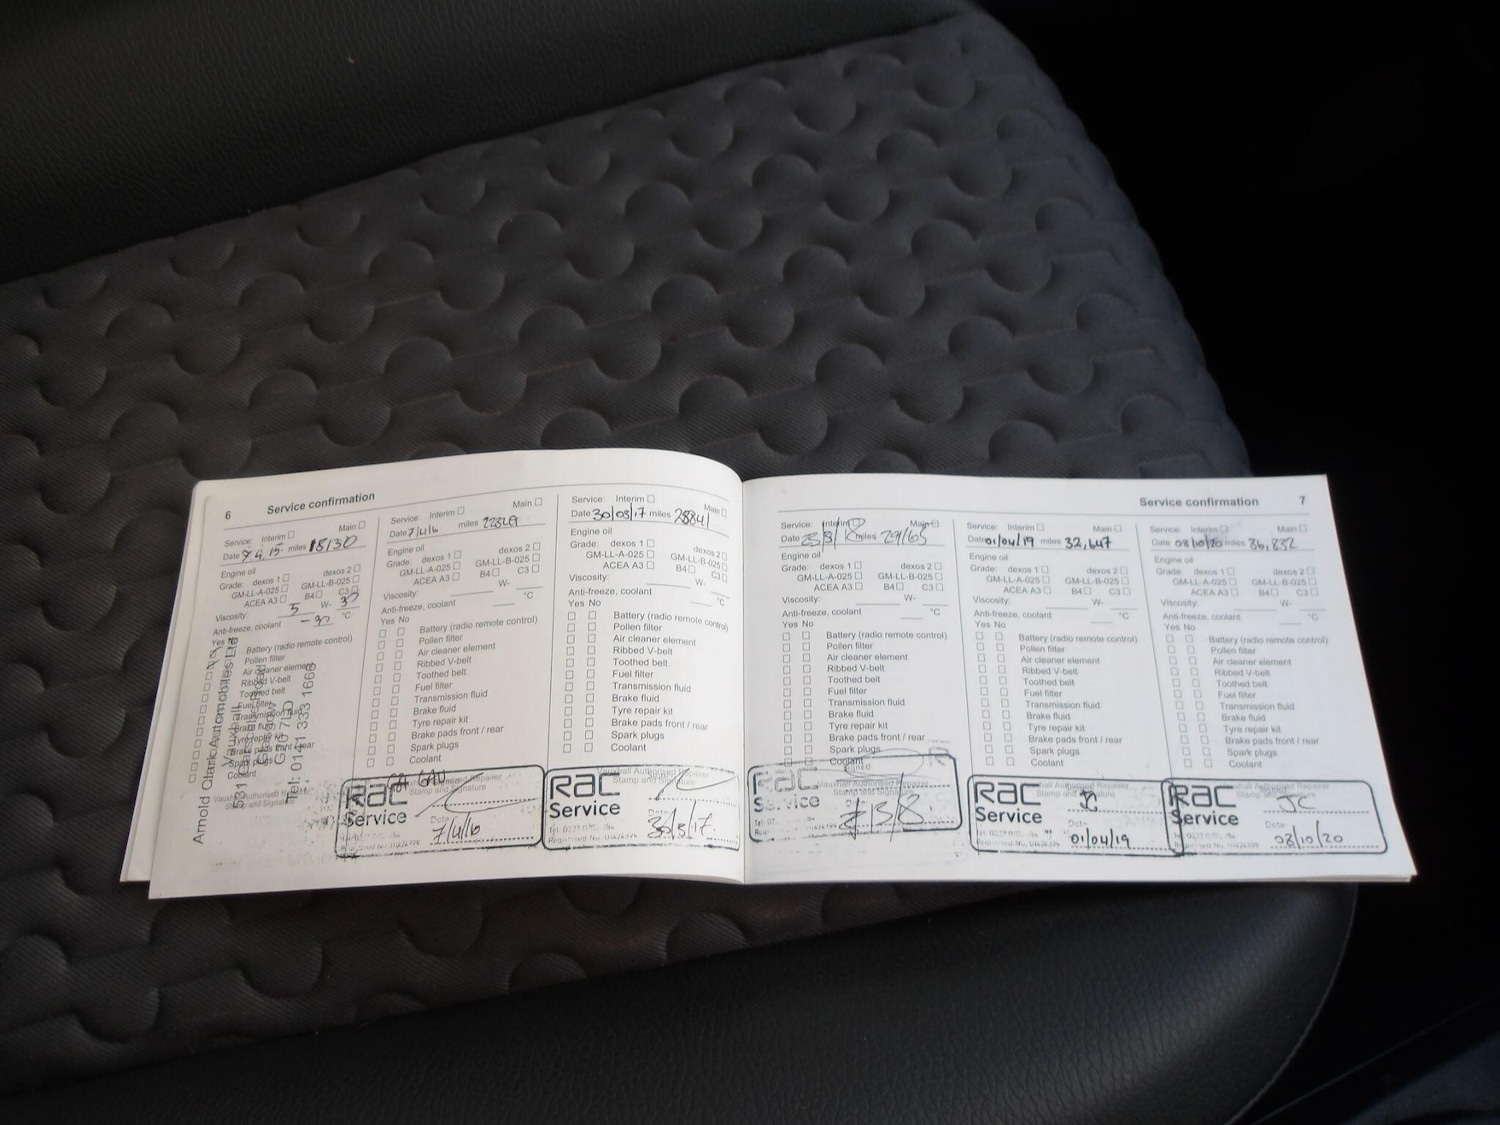 6 Service confirmation
Service: Interim Main
Date 7.4.15 miles 18130
Engine oil
Grade: dexos 1 dexos 2
GM-LL-A-025 GM-LL-B-025
ACEA A3 B4 C3
Viscosity: 5 W- 30
Anti-freeze, coolant °C
Yes No
Battery (radio remote control)
Pollen filter
Air cleaner element
Ribbed V-belt
Toothed belt
Fuel filter
Transmission fluid
Brake fluid
Tyre repair kit
Brake pads front / rear
Spark plugs
Coolant
Arnold Clark Automobiles Ltd
Vauxhall
Tel: 0141 333 1668
Service: Interim Main
Date 7/4/16 miles
Engine oil
Grade: dexos 1 dexos 2
GM-LL-A-025 GM-LL-B-025
ACEA A3 B4 C3
Viscosity: W-
Anti-freeze, coolant °C
Yes No
Battery (radio remote control)
Pollen filter
Air cleaner element
Ribbed V-belt
Toothed belt
Fuel filter
Transmission fluid
Brake fluid
Tyre repair kit
Brake pads front / rear
Spark plugs
Coolant
RAC
Service
Date
7/4/16
Service: Interim Main
Date 30/03/17 miles 28841
Engine oil
Grade: dexos 1 dexos 2
GM-LL-A-025 GM-LL-B-025
ACEA A3 B4 C3
Viscosity: W-
Anti-freeze, coolant °C
Yes No
Battery (radio remote control)
Pollen filter
Air cleaner element
Ribbed V-belt
Toothed belt
Fuel filter
Transmission fluid
Brake fluid
Tyre repair kit
Brake pads front / rear
Spark plugs
Coolant
Vauxhall Authorised Repairer
Stamp and Signature
RAC
Service
Date
30/3/17
Service confirmation 7
Service: Interim Main
Date miles 29165
Engine oil
Grade: dexos 1 dexos 2
GM-LL-A-025 GM-LL-B-025
ACEA A3 B4 C3
Viscosity: W-
Anti-freeze, coolant °C
Yes No
Battery (radio remote control)
Pollen filter
Air cleaner element
Ribbed V-belt
Toothed belt
Fuel filter
Transmission fluid
Brake fluid
Tyre repair kit
Brake pads front / rear
Spark plugs
Coolant
Vauxhall Authorised Repairer
Stamp and Signature
RAC
Service
Service: Interim Main
Date 01/04/19 miles 32,647
Engine oil
Grade: dexos 1 dexos 2
GM-LL-A-025 GM-LL-B-025
ACEA A3 B4 C3
Viscosity: W-
Anti-freeze, coolant °C
Yes No
Battery (radio remote control)
Pollen filter
Air cleaner element
Ribbed V-belt
Toothed belt
Fuel filter
Transmission fluid
Brake fluid
Tyre repair kit
Brake pads front / rear
Spark plugs
Coolant
Authorised Repairer
Stamp and Signature
RAC
Service
JC
Date
01/04/19
Service: Interim Main
Date 08/10/20 miles 36,832
Engine oil
Grade: dexos 1 dexos 2
GM-LL-A-025 GM-LL-B-025
ACEA A3 B4 C3
Viscosity: W-
Anti-freeze, coolant °C
Yes No
Battery (radio remote control)
Pollen filter
Air cleaner element
Ribbed V-belt
Toothed belt
Fuel filter
Transmission fluid
Brake fluid
Tyre repair kit
Brake pads front / rear
Spark plugs
Coolant
Authorised Repairer
RAC
Service
JC
Date
08/10/20